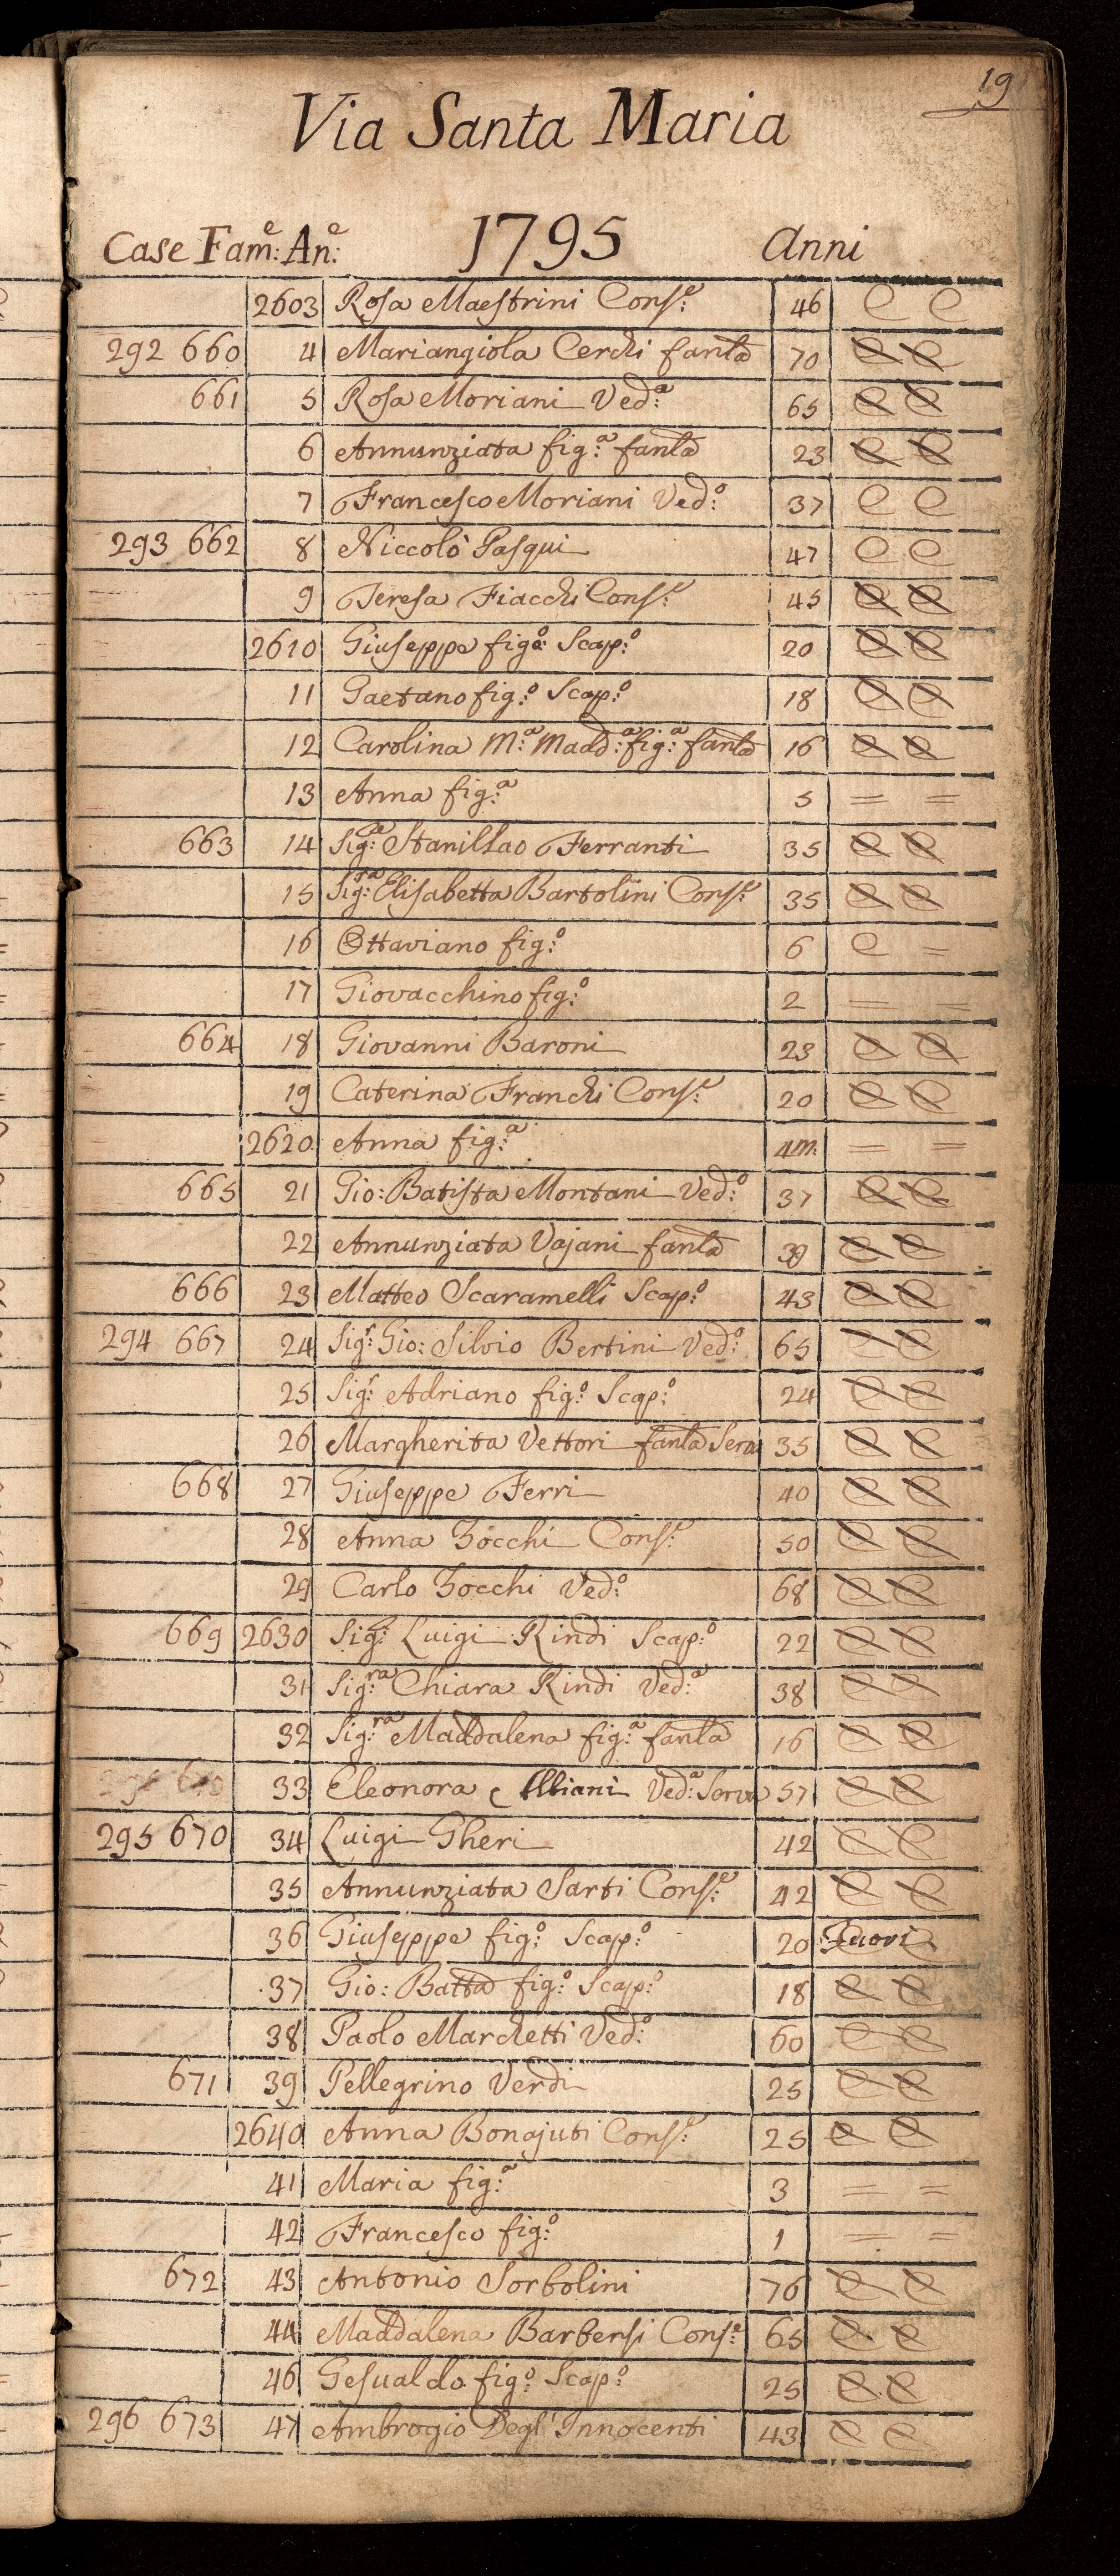 19
Via Santa Maria
Case Fam:e An:e 1795 Anni
2603 Rosa Maestrini Cons:e 46 C C
292 660 4 Mariangiola Cerchi fanla 70 C C
661 5 Rosa Moriani Ved:a 65 C C
6 Annunziata fig:a fanla 23 C C
7 Francesco Moriani Ved:o 37 C C
293 662 8 Niccolò Pasqui 47 C C
9 Teresa Fiacchi Cons:e 45 C C
2610 Giuseppe fig:o Scap:o 20 C C
11 Gaetano fig:o Scap:o 18 C C
12 Carolina M:a Madd:a fig:a fanla 16 C C
13 Anna fig:a 5 = =
663 14 Sig:re Stanislao Ferranti 35 C C
15 Sig:ra Elisabetta Bartolini Cons:e 35 C C
16 Ottaviano fig:o 6 C =
17 Giovacchino fig:o 2 = =
664 18 Giovanni Baroni 23 C C
19 Caterina Franchi Cons:e 20 C C
2620 Anna fig:a 4m. = =
665 21 Gio: Batista Montani Ved:o 37 C C
22 Annunziata Vajani fanla 39 C C
666 23 Matteo Scaramelli Scap:o 43 C C
294 667 24 Sig:r Gio: Silvio Bertini Ved:o 65 C C
25 Sig:r Adriano fig:o Scap:o 24 C C
26 Margherita Vettori fanla Serva 35 C C
668 27 Giuseppe Ferri 40 C C
28 Anna Zocchi Cons:e 50 C C
29 Carlo Zocchi Ved:o 68 C C
669 2630 Sig:r Luigi Rindi Scap:o 22 C C
31 Sig:ra Chiara Rindi Ved:a 38 C C
32 Sig:ra Maddalena fig:a fanla 16 C C
33 Eleonora Albiani Ved:a Serva 57 C C
295 670 34 Luigi Gheri 42 C C
35 Annunziata Sarti Cons:e 42 C C
36 Giuseppe fig:o Scap:o 20 Fuori
37 Gio: Batta fig:o Scap:o 18 C C
38 Paolo Marchetti Ved:o 60 C C
671 39 Pellegrino Verdi 25 C C
2640 Anna Bonajuti Cons:e 25 C C
41 Maria fig:a 3 = =
42 Francesco fig:o 1 = =
672 43 Antonio Sorbolini 76 C C
44 Maddalena Barbensi Cons:e 65 C C
46 Gesualdo fig:o Scap:o 25 C C
296 673 47 Ambrogio Degl'Innocenti 43 C C